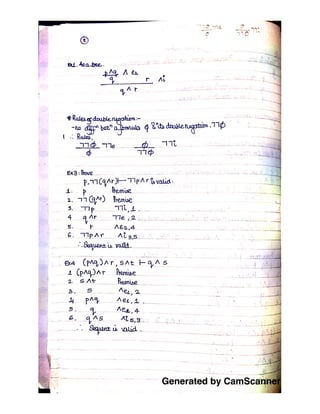 ①
Ex2. As a tree.
p∧q ∧e2
q r ∧i
q ∧ r
* Rules of double negation:-
-no diff^n bet^n a formula φ & its double negation ¬¬φ
∴ Rules,
¬¬φ ¬¬e φ ¬¬i
φ ¬¬φ
Ex3: Prove
p, ¬¬(q∧r) ⊢ ¬¬p∧r is valid.
1. p Premise
2. ¬¬(q∧r) Premise
3. ¬¬p ¬¬i, 1.
4 q∧r ¬¬e, 2
5. r ∧e2,4
6. ¬¬p∧r ∧i 3,5
∴ Sequent is valid.
Ex4 (p∧q)∧r, s∧t ⊢ q∧s
1 (p∧q)∧r Premise
2. s∧t Premise
3. s ∧e1, 2
4 p∧q ∧e1, 1.
5. q ∧e2, 4
6. q∧s ∧i 5,3.
∴ Sequent is valid.
Generated by CamScanner